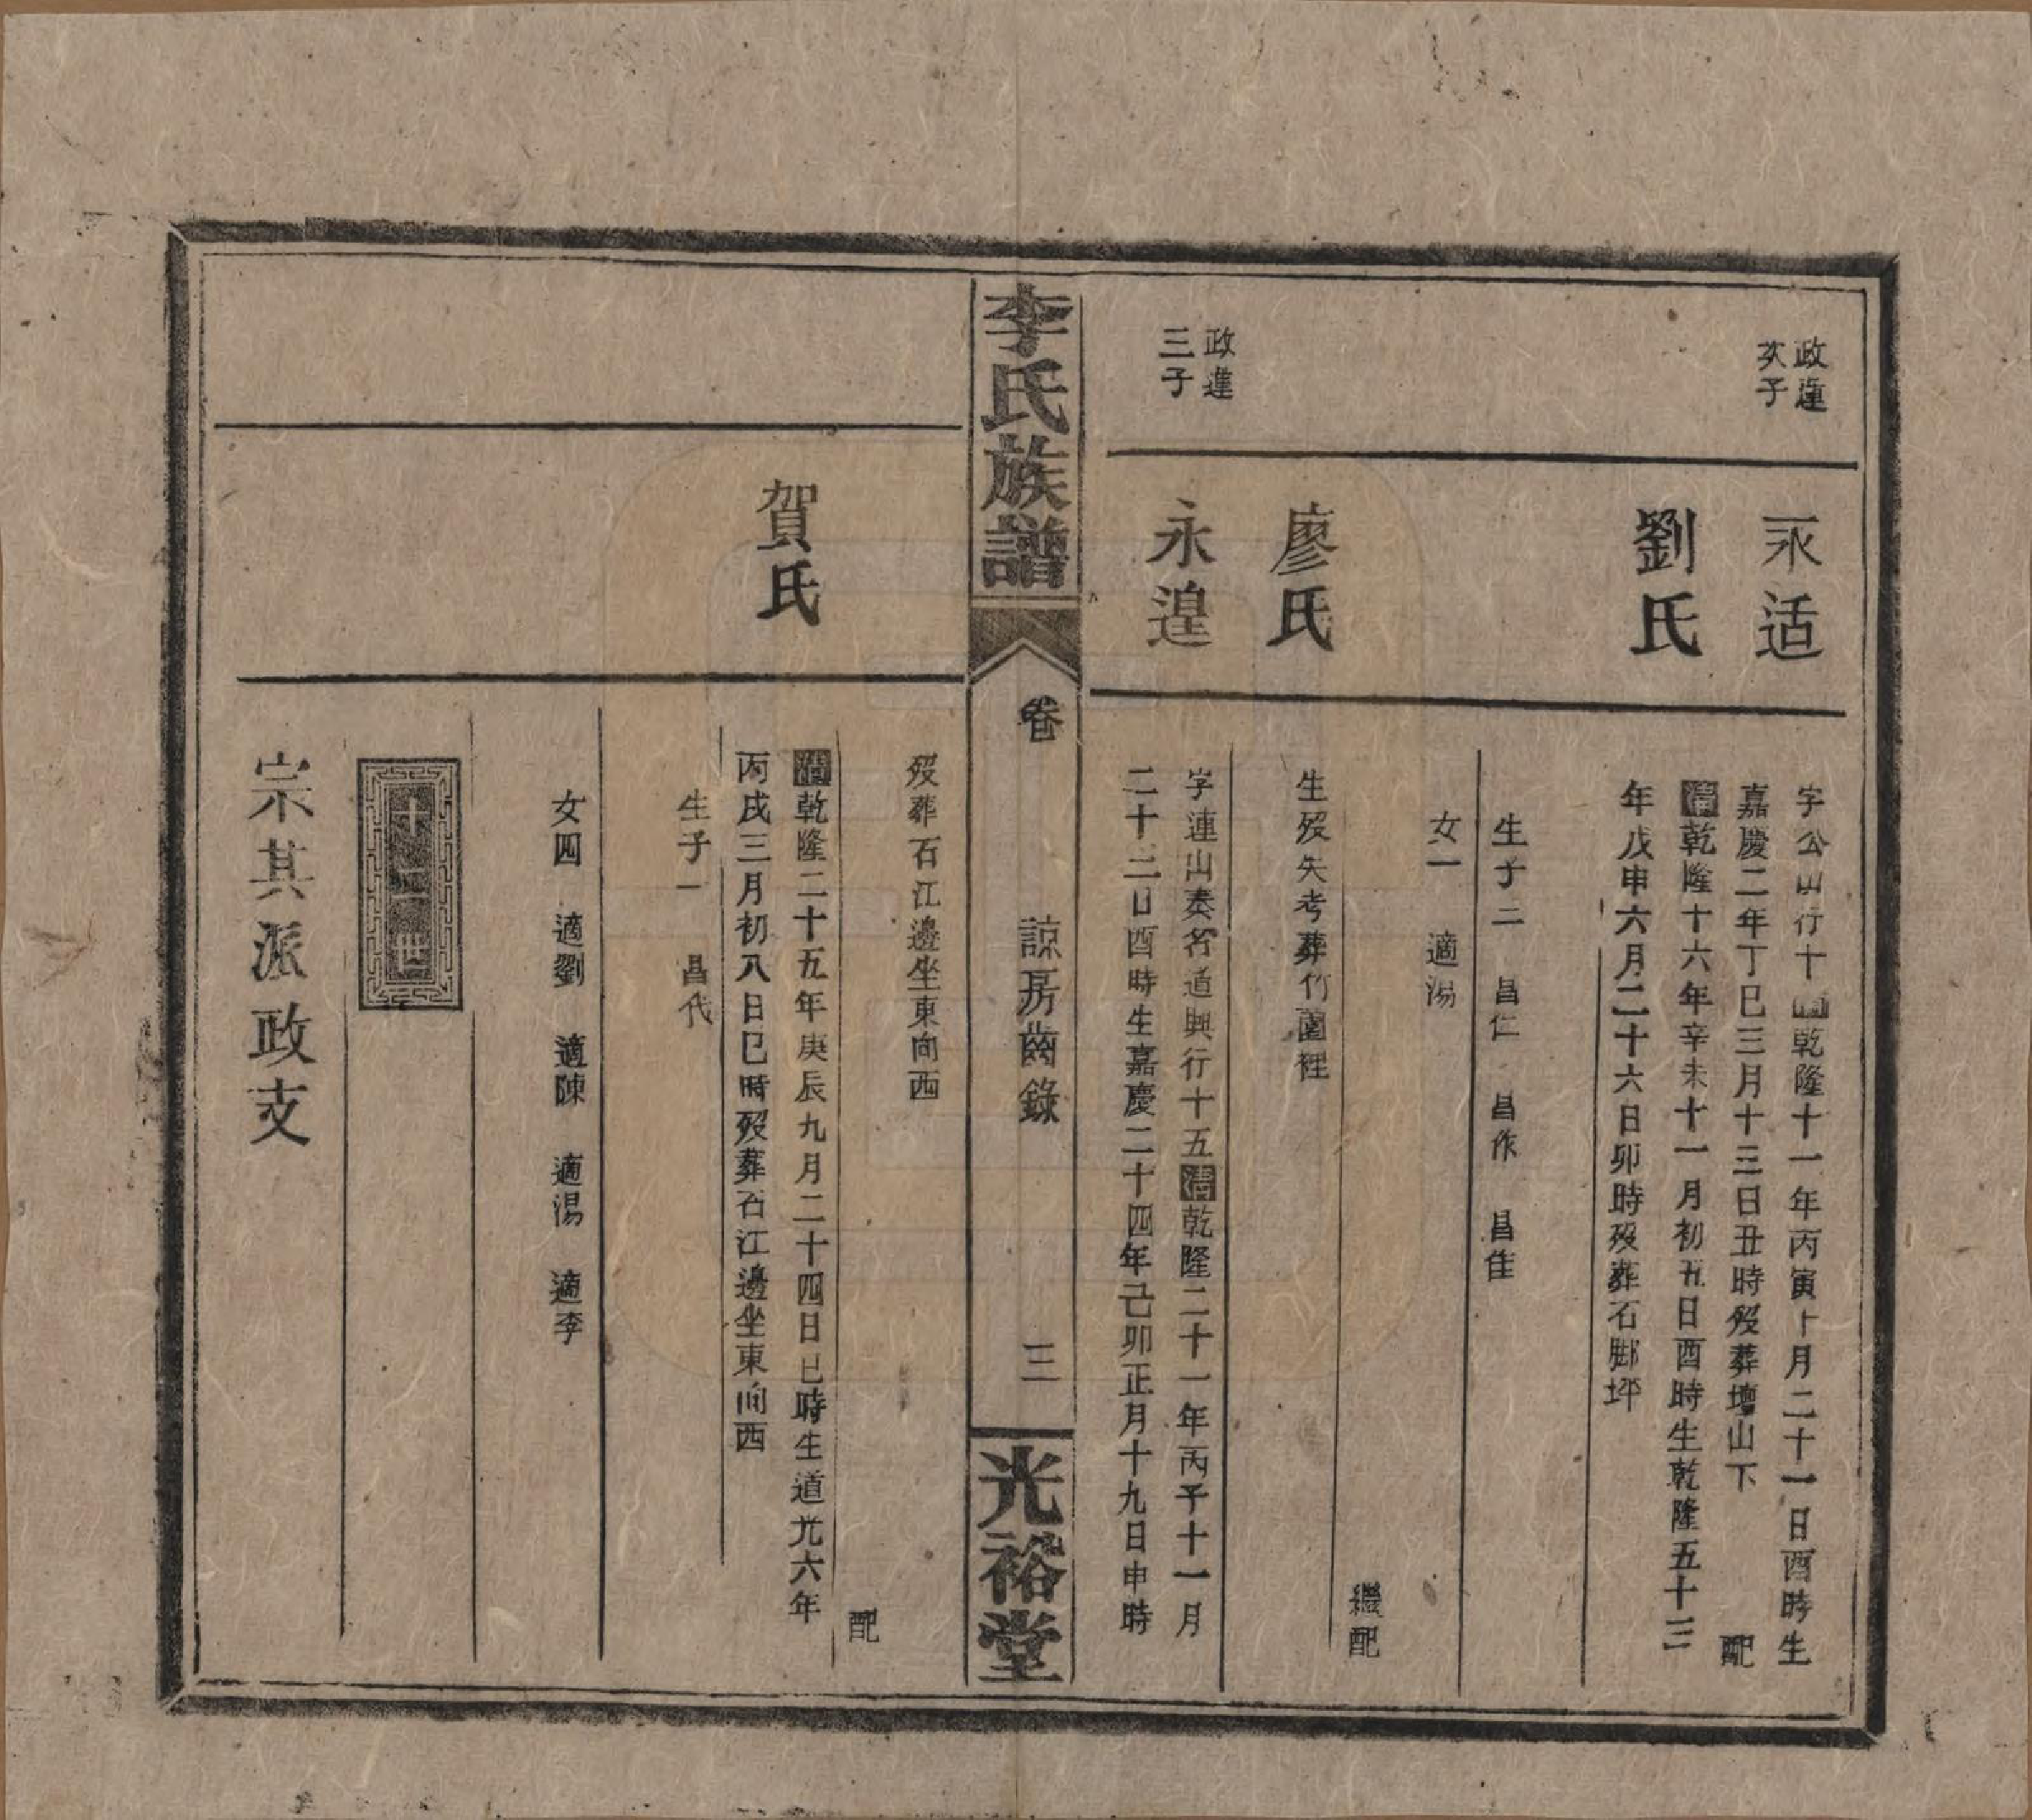 政進
次子
永适
字公山行十四清乾隆十一年丙寅十月二十一日酉時生
嘉慶二年丁巳三月十三日丑時歿葬壇山下 配
劉氏
清乾隆十六年辛未十一月初五日酉時生乾隆五十三
年戊申六月二十六日卯時歿葬石腳坪
生子三 昌仁 昌作 昌隹
女一 適湯
繼配
廖氏
生歿失考葬竹園裡
政進
三子
永遑
字連山奏名道興行十五清乾隆二十一年丙子十一月
二十二日酉時生嘉慶二十四年己卯正月十九日申時
李氏族譜
卷
諒房齒錄
三
光裕堂
歿葬石江邊坐東向西
配
賀氏
清乾隆二十五年庚辰九月二十四日巳時生道光六年
丙戌三月初八日巳時歿葬石江邊坐東向西
生子一 昌代
女四 適劉 適陳 適湯 適李
十二世
宗其派政支